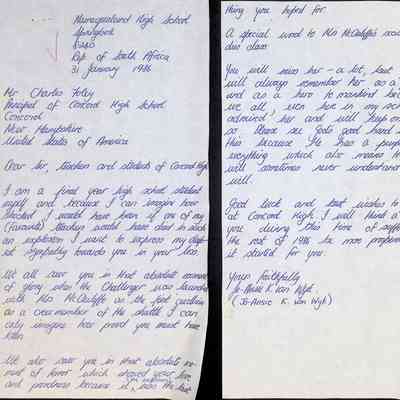 Hurnageesland High School
Springbok
8240
Rep. of South Africa
31 January 1986
Mr Charles Foley
Principal of Concord High School
Concord
New Hampshire
United States of America
Dear Sir, teachers and students of Concord High
I am a final year high school student
myself and because I can imagine how
shocked I would have been if one of my
(favourite) teachers would have died in such
an explosion I want to express my deep-
est sympathy towards you in your loss.
We all saw you in that absolute moment
of glory when the Challenger was launched
with Mrs McAuliffe as the first
as a crew member of the shuttle. I can
only imagine how proud you must have
been.
We also saw you in that absolute mo-
ment of horror which your
and proudness because it was the last
thing you hoped for.
A special word to Mrs McAuliffe's
class
You will miss her - a lot, but
will always remember her as a
and as a hero to mankind
we all, even here in my
admired her and will keep on
so. Please see God's good hand
this because He has a
everything which also means
will sometimes never understand
will.
Good luck and best wishes to
at Concord High. I will think a
you during this time of
the rest of 1986 be more
it started for you.
Yours faithfully
Jo-Ansie K. van Wyk
(Jo-Ansie K. van Wyk)